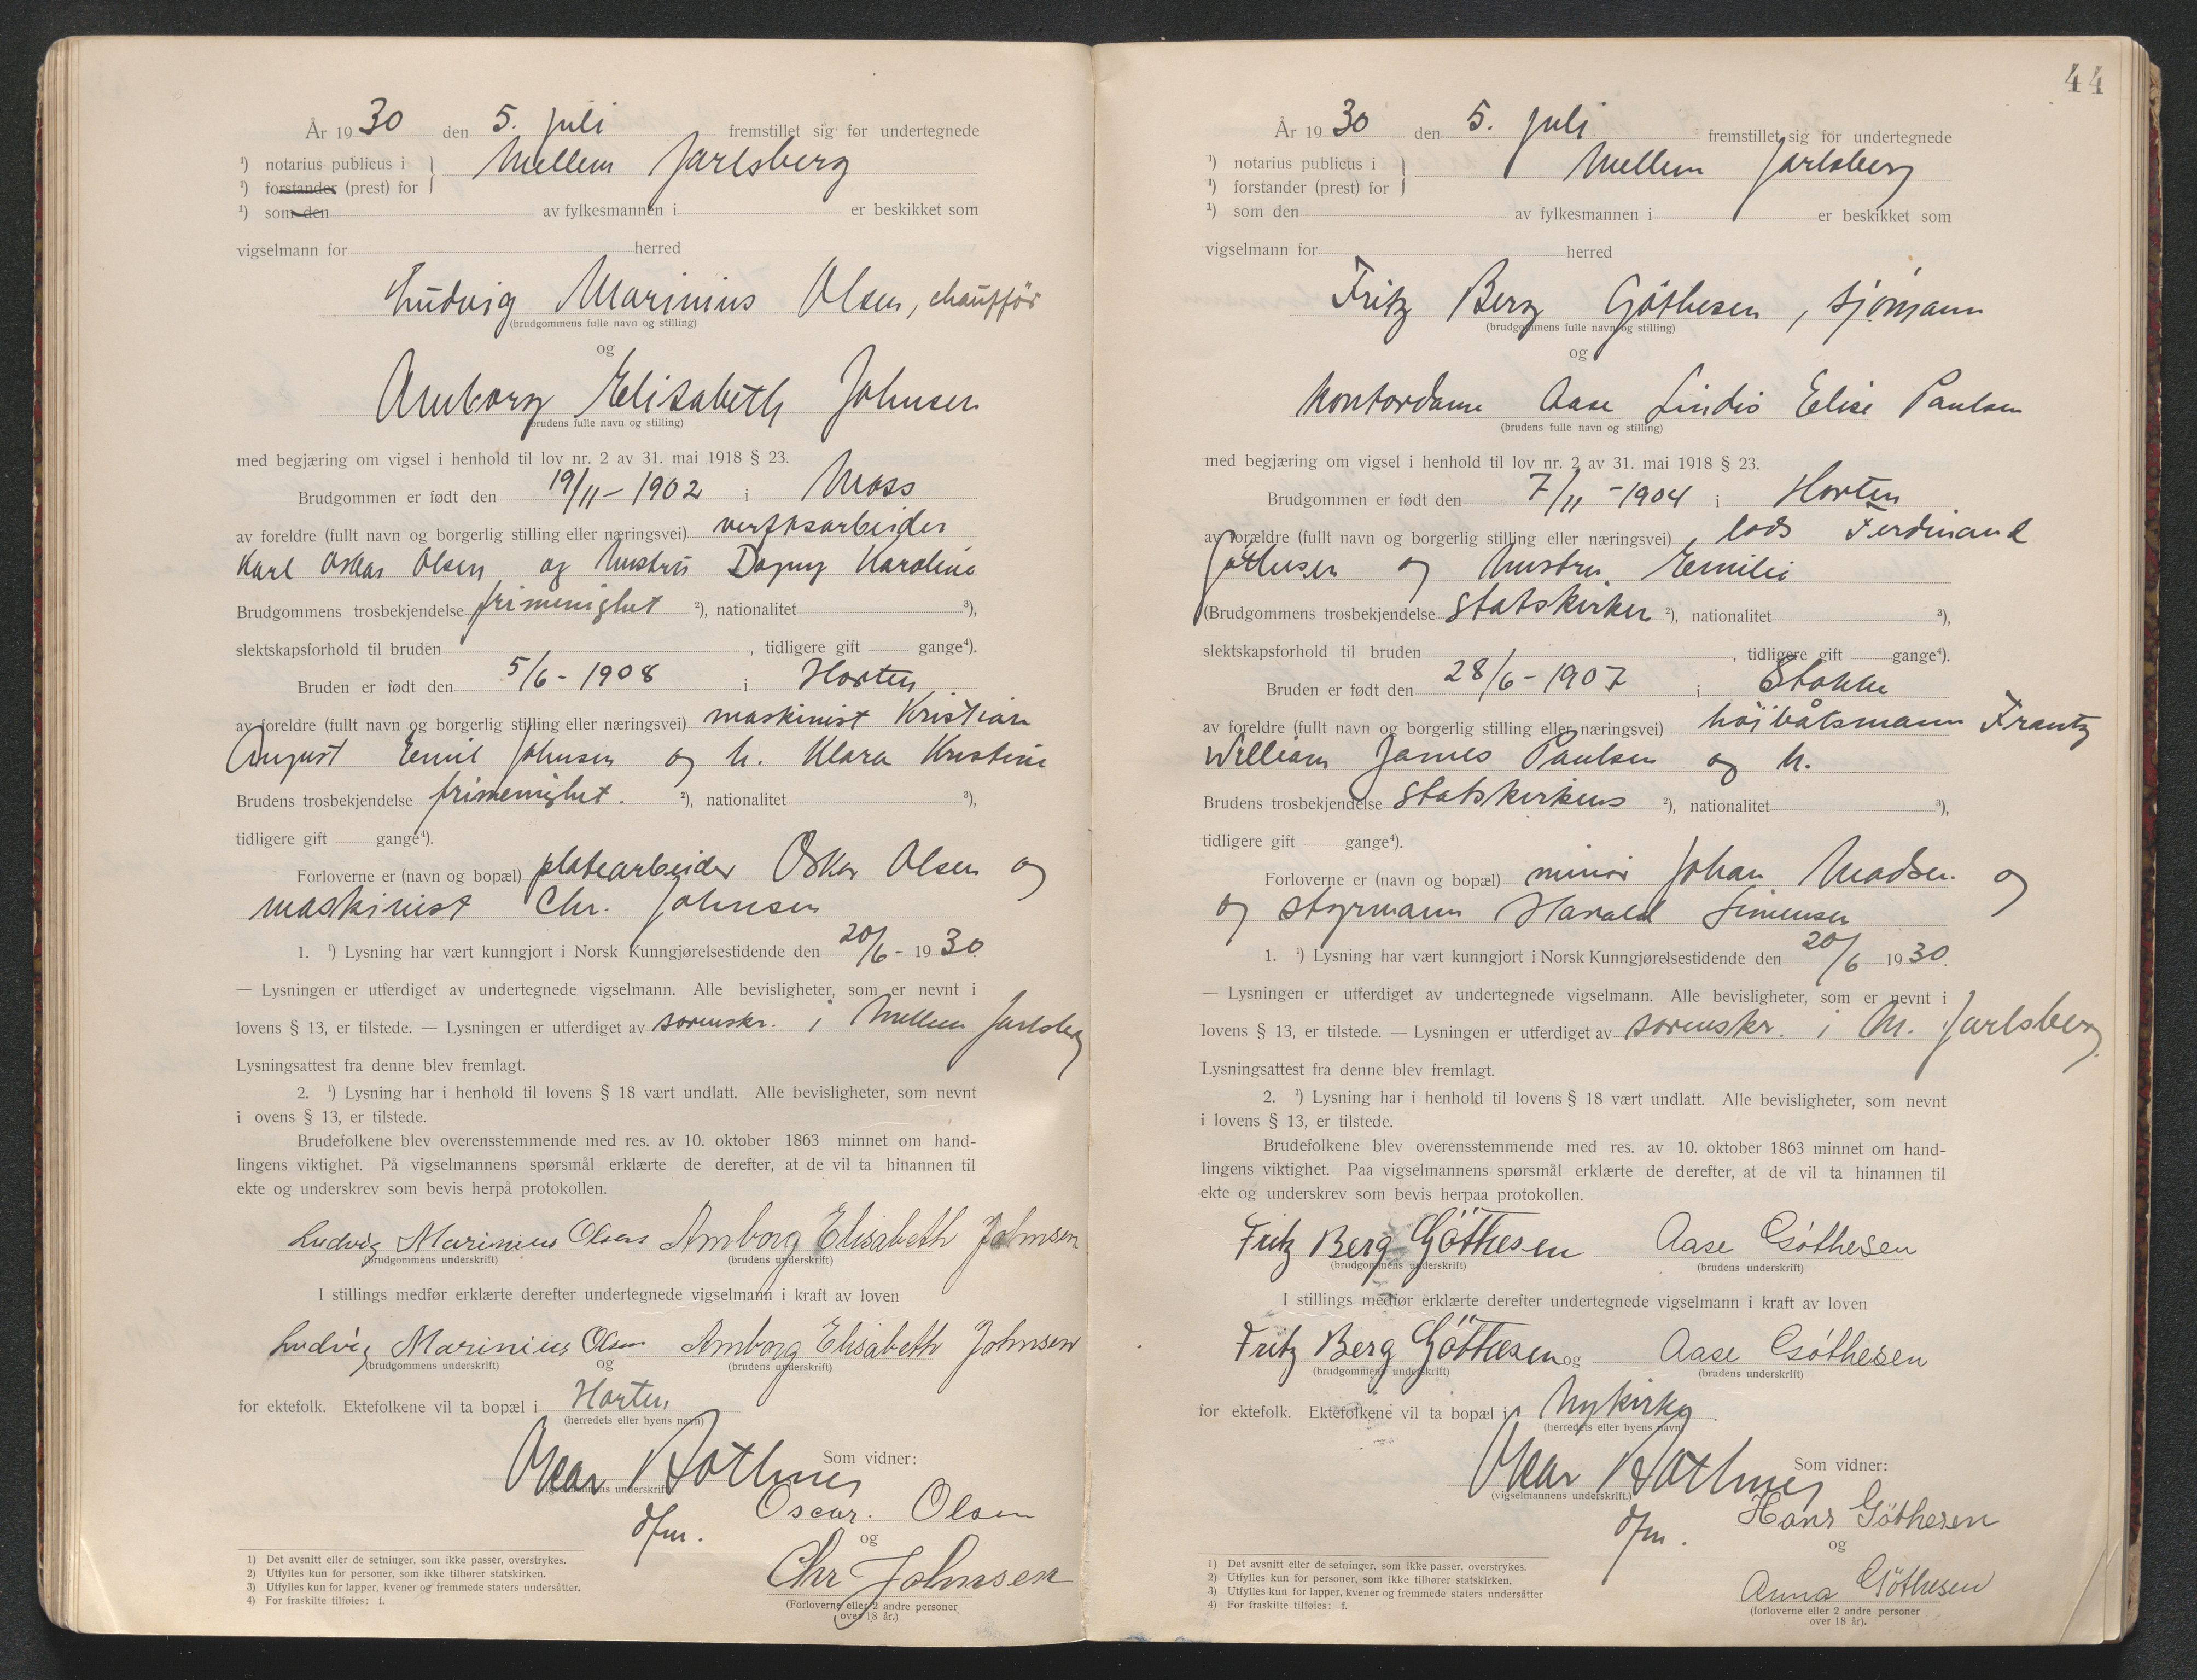 År 1930 den 5. juli fremstillet sig for undertegnede
¹) notarius publicus i } Mellem Jarlsberg
¹) forstander (prest) for
¹) som den av fylkesmannen i er beskikket som
vigselmann for herred
Ludvig Marinius Olsen, chauffør
(brudgommens fulle navn og stilling)
og
Amborg Elisabeth Johnsen
(brudens fulle navn og stilling)
med begjæring om vigsel i henhold til lov nr. 2 av 31. mai 1918 § 23.
Brudgommen er født den 19/11 - 1902 i Moss
av foreldre (fullt navn og borgerlig stilling eller næringsvei) verftsarbeider
Karl Oskar Olsen og hustru Dagny Karoline
Brudgommens trosbekjendelse frimenighet ²), nationalitet ³),
slektskapsforhold til bruden , tidligere gift gange⁴).
Bruden er født den 5/6 - 1908 i Horten
av foreldre (fullt navn og borgerlig stilling eller næringsvei) maskinist Kristian
August Emil Johnsen og h. Klara Kristine
Brudens trosbekjendelse frimenighet. ²), nationalitet ³),
tidligere gift gange⁴).
Forloverne er (navn og bopæl) platearbeider Oskar Olsen og
maskinist Chr. Johnsen
1. ¹) Lysning har vært kunngjort i Norsk Kunngjørelsestidende den 20/6 - 1930.
— Lysningen er utferdiget av undertegnede vigselmann. Alle bevisligheter, som er nevnt i
lovens § 13, er tilstede. — Lysningen er utferdiget av sorenskr. i Mellem Jarlsberg
Lysningsattest fra denne blev fremlagt.
2. ¹) Lysning har i henhold til lovens § 18 vært undlatt. Alle bevisligheter, som nevnt
i ovens § 13, er tilstede.
Brudefolkene blev overensstemmende med res. av 10. oktober 1863 minnet om hand-
lingens viktighet. På vigselmannens spørsmål erklærte de derefter, at de vil ta hinannen til
ekte og underskrev som bevis herpå protokollen.
Ludvig Marinius Olsen Amborg Elisabeth Johnsen
(brudgommens underskrift) (brudens underskrift)
I stillings medfør erklærte derefter undertegnede vigselmann i kraft av loven
Ludvig Marinius Olsen Amborg Elisabeth Johnsen
(brudgommens underskrift) og (brudens underskrift)
for ektefolk. Ektefolkene vil ta bopæl i Horten
(herredets eller byens navn)
Som vidner:
Oskar Rothnes
(vigselmannens underskrift)
dfm.
Oscar. Olsen
og
Chr Johnsen
(Forloverne eller 2 andre personer
over 18 år.)
1) Det avsnitt eller de setninger, som ikke passer, overstrykes.
2) Utfylles kun for personer, som ikke tilhører statskirken.
3) Utfylles kun for lapper, kvener og fremmede staters undersåtter.
4) For fraskilte tilføies: f.
44
År 1930 den 5. juli fremstillet sig for undertegnede
¹) notarius publicus i } Mellem Jarlsberg
¹) forstander (prest) for
¹) som den av fylkesmannen i er beskikket som
vigselmann for herred
Fritz Berg Gøthesen, sjømann
(brudgommens fulle navn og stilling)
og
Kontordame Aase Lindis Elise Paulsen
(brudens fulle navn og stilling)
med begjæring om vigsel i henhold til lov nr. 2 av 31. mai 1918 § 23.
Brudgommen er født den 7/11 - 1904 i Horten
av forældre (fullt navn og borgerlig stilling eller næringsvei) lods Ferdinand
Gøthesen og hustru Emilie
(Brudgommens trosbekjendelse statskirken ²), nationalitet ³),
slektskapsforhold til bruden , tidligere gift gange⁴).
Bruden er født den 28/6 - 1907 i Stokke
av foreldre (fullt navn og borgerlig stilling eller næringsvei) høibåtsmann Frantz
William James Paulsen og h.
Brudens trosbekjendelse statskirkens ²), nationalitet ³),
tidligere gift gange⁴).
Forloverne er (navn og bopæl) minør Johan Madsen og
og styrmann Harald Simensen
1. ¹) Lysning har vært kunngjort i Norsk Kunngjørelsestidende den 20/6 1930.
— Lysningen er utferdiget av undertegnede vigselmann. Alle bevisligheter, som er nevnt i
lovens § 13, er tilstede. — Lysningen er utferdiget av sorenskr. i M. Jarlsberg.
Lysningsattest fra denne blev fremlagt.
2. ¹) Lysning har i henhold til lovens § 18 vært undlatt. Alle bevisligheter, som nevnt
i lovens § 13, er tilstede.
Brudefolkene blev overensstemmende med res. av 10. oktober 1863 minnet om hand-
lingens viktighet. Paa vigselmannens spørsmål erklærte de derefter, at de vil ta hinannen til
ekte og underskrev som bevis herpaa protokollen.
Fritz Berg Göthesen Aase Gøthesen
(brudgommens underskrift) (brudens underskrift)
I stillings medfør erklærte derefter undertegnede vigselmann i kraft av loven
Fritz Berg Göthesen og Aase Gøthesen
(brudgommens underskrift) (brudens underskrift)
for ektefolk. Ektefolkene vil ta bopæl i Nykirke.
(herredets eller byens navn)
Som vidner:
Oskar Rothnes
(vigselmannens underskrift.)
dfm.
Hans Göthesen
og
Anna Göthesen
(forloverne eller 2 andre personer
over 18 år).
1) Det avsnitt eller de setninger, som ikke passer, overstrykes.
2) Utfylles kun for personer, som ikke tilhører statskirken.
3) Utfylles kun for lapper, kvener og fremmede staters undersåtter
4) For fraskilte tilføies: f.